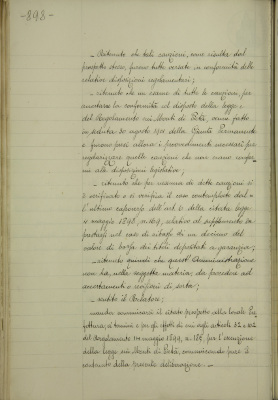 -898-
- Ritenuto che tali cauzioni, come risulta dal
prospetto stesso, furono tutte versate in conformità delle
relative disposizioni regolamentari;
- ritenuto che un esame di tutte le cauzioni, per
accertarne la conformità al disposto della legge e
del Regolamento sui Monti di Pietà, venne fatto
in seduta 30 agosto 1911 della Giunta Permanente
e furono presi allora i provvedimenti necessari per
regolarizzare quelle cauzioni che non erano confor-
mi alle disposizioni legislative;
- ritenuto che per nessuna di dette cauzioni si
è verificato o si verifica il caso contemplato dal-
l'ultimo capoverso dell'art. 6 della citata legge
4 maggio 1898, n. 169, relativo al supplemento da
prestarsi nel caso di ribasso di un decimo del
valore di borsa dei titoli depositati a garanzia;
- ritenuto quindi che quest'Amministrazione
non ha, nella soggetta materia, da procedere ad
accertamenti o reintegri di sorta;
- sentito il Relatore;
manda comunicarsi il citato prospetto alla locale Pre-
fettura, ai termini e per gli effetti di cui negli articoli
del Regolamento 14 maggio 1899, n. 185, per l'esecuzione
della legge sui Monti di Pietà, comunicando pure il
contenuto della presente deliberazione. -